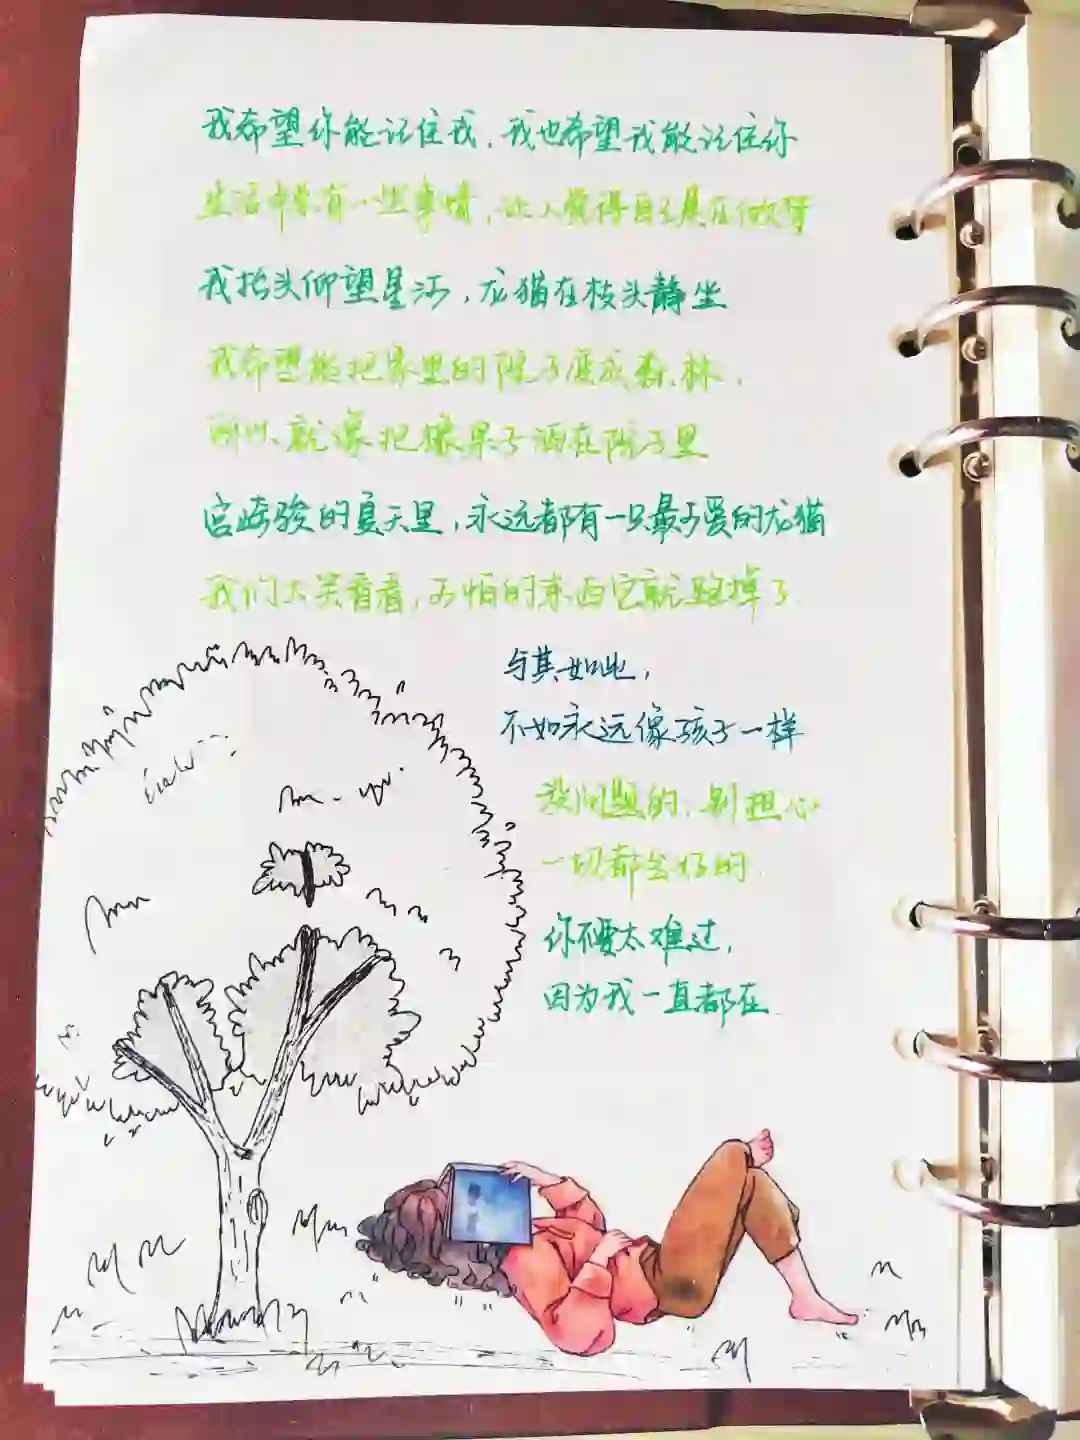 我希望你能记住我，我也希望我能记住你
生活中总有一些事情，让人觉得自己是在做梦
我抬头仰望星河，龙猫在枝头静坐
我希望能把家里的院子变成森林，
所以就像把橡果子洒在院子里
宫崎骏的夏天里，永远都有一只最可爱的龙猫
我们大笑看看，可怕的东西它就跑掉了
与其如此，
不如永远像孩子一样
没问题的，别担心
一切都会好的
你不要太难过，
因为我一直都在